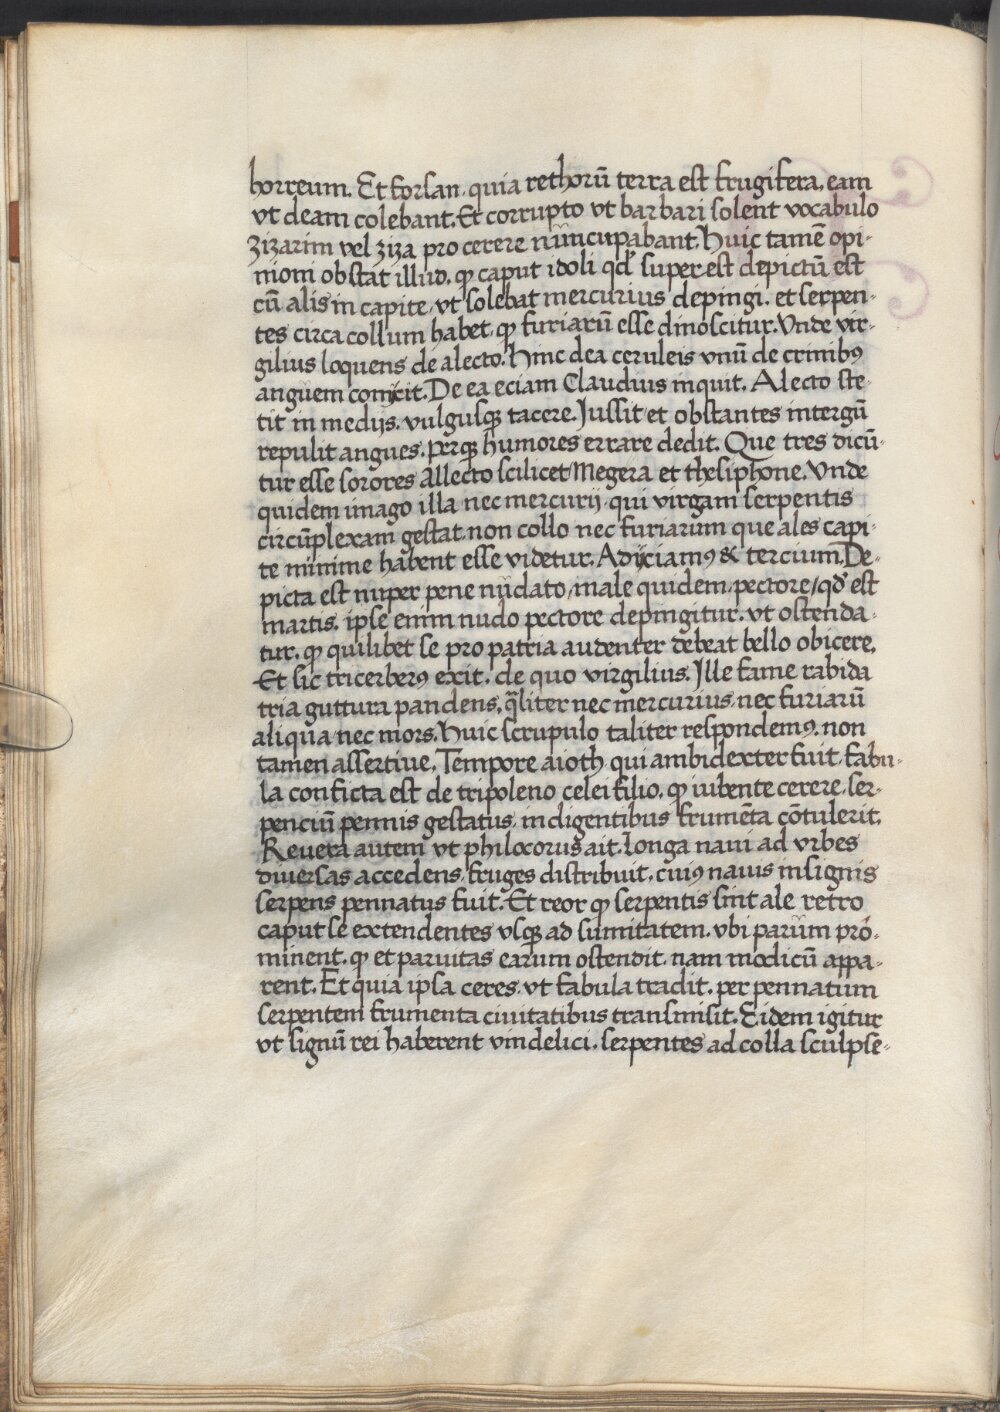 horreum. Et forsan quia rethorū terra est frugifera, eam
vt deam colebant. Et corrupto vt barbari solent vocabulo
zizarim vel ziza pro cerere nuncupabant. Huic tamē opi-
nioni obstat illud, qꝫ caput idoli qd' super est depictū est
cū alis in capite, vt solebat mercurius depingi. et serpen-
tes circa collum habet, qꝫ furiarū esse dinoscitur. Vnde vir-
gilius loquens de alecto. Hinc dea ceruleis vnū de crinibꝰ
anguem conijcit. De ea eciam Claudius inquit. Alecto ste-
tit in medijs, vulgusqꝫ tacere. Jussit et obstantes intergū
repulit angues. Perqꝫ humores errare dedit. Que tres dicū-
tur esse sorores Allecto scilicet Megera et thesiphone. Vnde
quidem imago illa nec mercurij qui virgam serpentis
circūplexam gestat non collo nec furiarum que ales capi-
te minime habent esse videtur. Adijciamꝰ & tercium. De-
picta est nuper pene nudato, male quidem, pectore, qd' est
martis. ipse enim nudo pectore depingitur. vt ostenda-
tur, qꝫ quilibet se pro patria audenter debeat bello obicere.
Et sic tricerberꝰ exit. de quo virgilius. Ille fame rabida
tria guttura pandens, q̄liter nec mercurius nec furiarū
aliqua nec mors. Huic scrupulo taliter respondemꝰ. non
tamen assertiue. Tempore aioth qui ambidexter fuit, fabu-
la conficta est de tripoleno celei filio, qꝫ iubente cerere, ser-
penciū pennis gestatus, indigentibus frumēta cōtulerit.
Reuera autem vt philocorus ait. longa naui ad vrbes
diuersas accedens, fruges distribuit, cuiꝰ nauis insignis
serpens pennatus fuit. Et reor qꝫ serpentis sint ale retro
caput se extendentes vsqꝫ ad sumitatem. vbi parum prō-
minent. qꝫ et paruitas earum ostendit. nam modicū appa-
rent. Et quia ipsa ceres vt fabula tradit. per pennatum
serpentem frumenta ciuitatibus transmisit. Eidem igitur
vt signū rei haberent vindelici. serpentes ad colla sculpse-